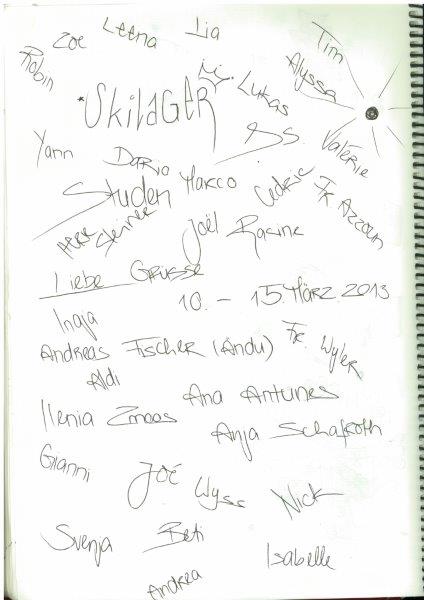 Zoe Leena Lia
Tim
Robin
Alyssa
*SkilaGER
Lukas
SS.
Valérie
Yann Dario
Marco
Cédric
Fr. Azzoun
Studen
Herr Steiner
Joël Racine
Liebe Grüsse
10. - 15. März 2013
Inga
Andreas Fischer (Andu)
Fr. Wyler
Aldi
Ana Antunes
Ilenia
Anja Schafroth
Gianni
Joé
Wyss
Nick
Svenja
Beti
Isabelle
Andrea